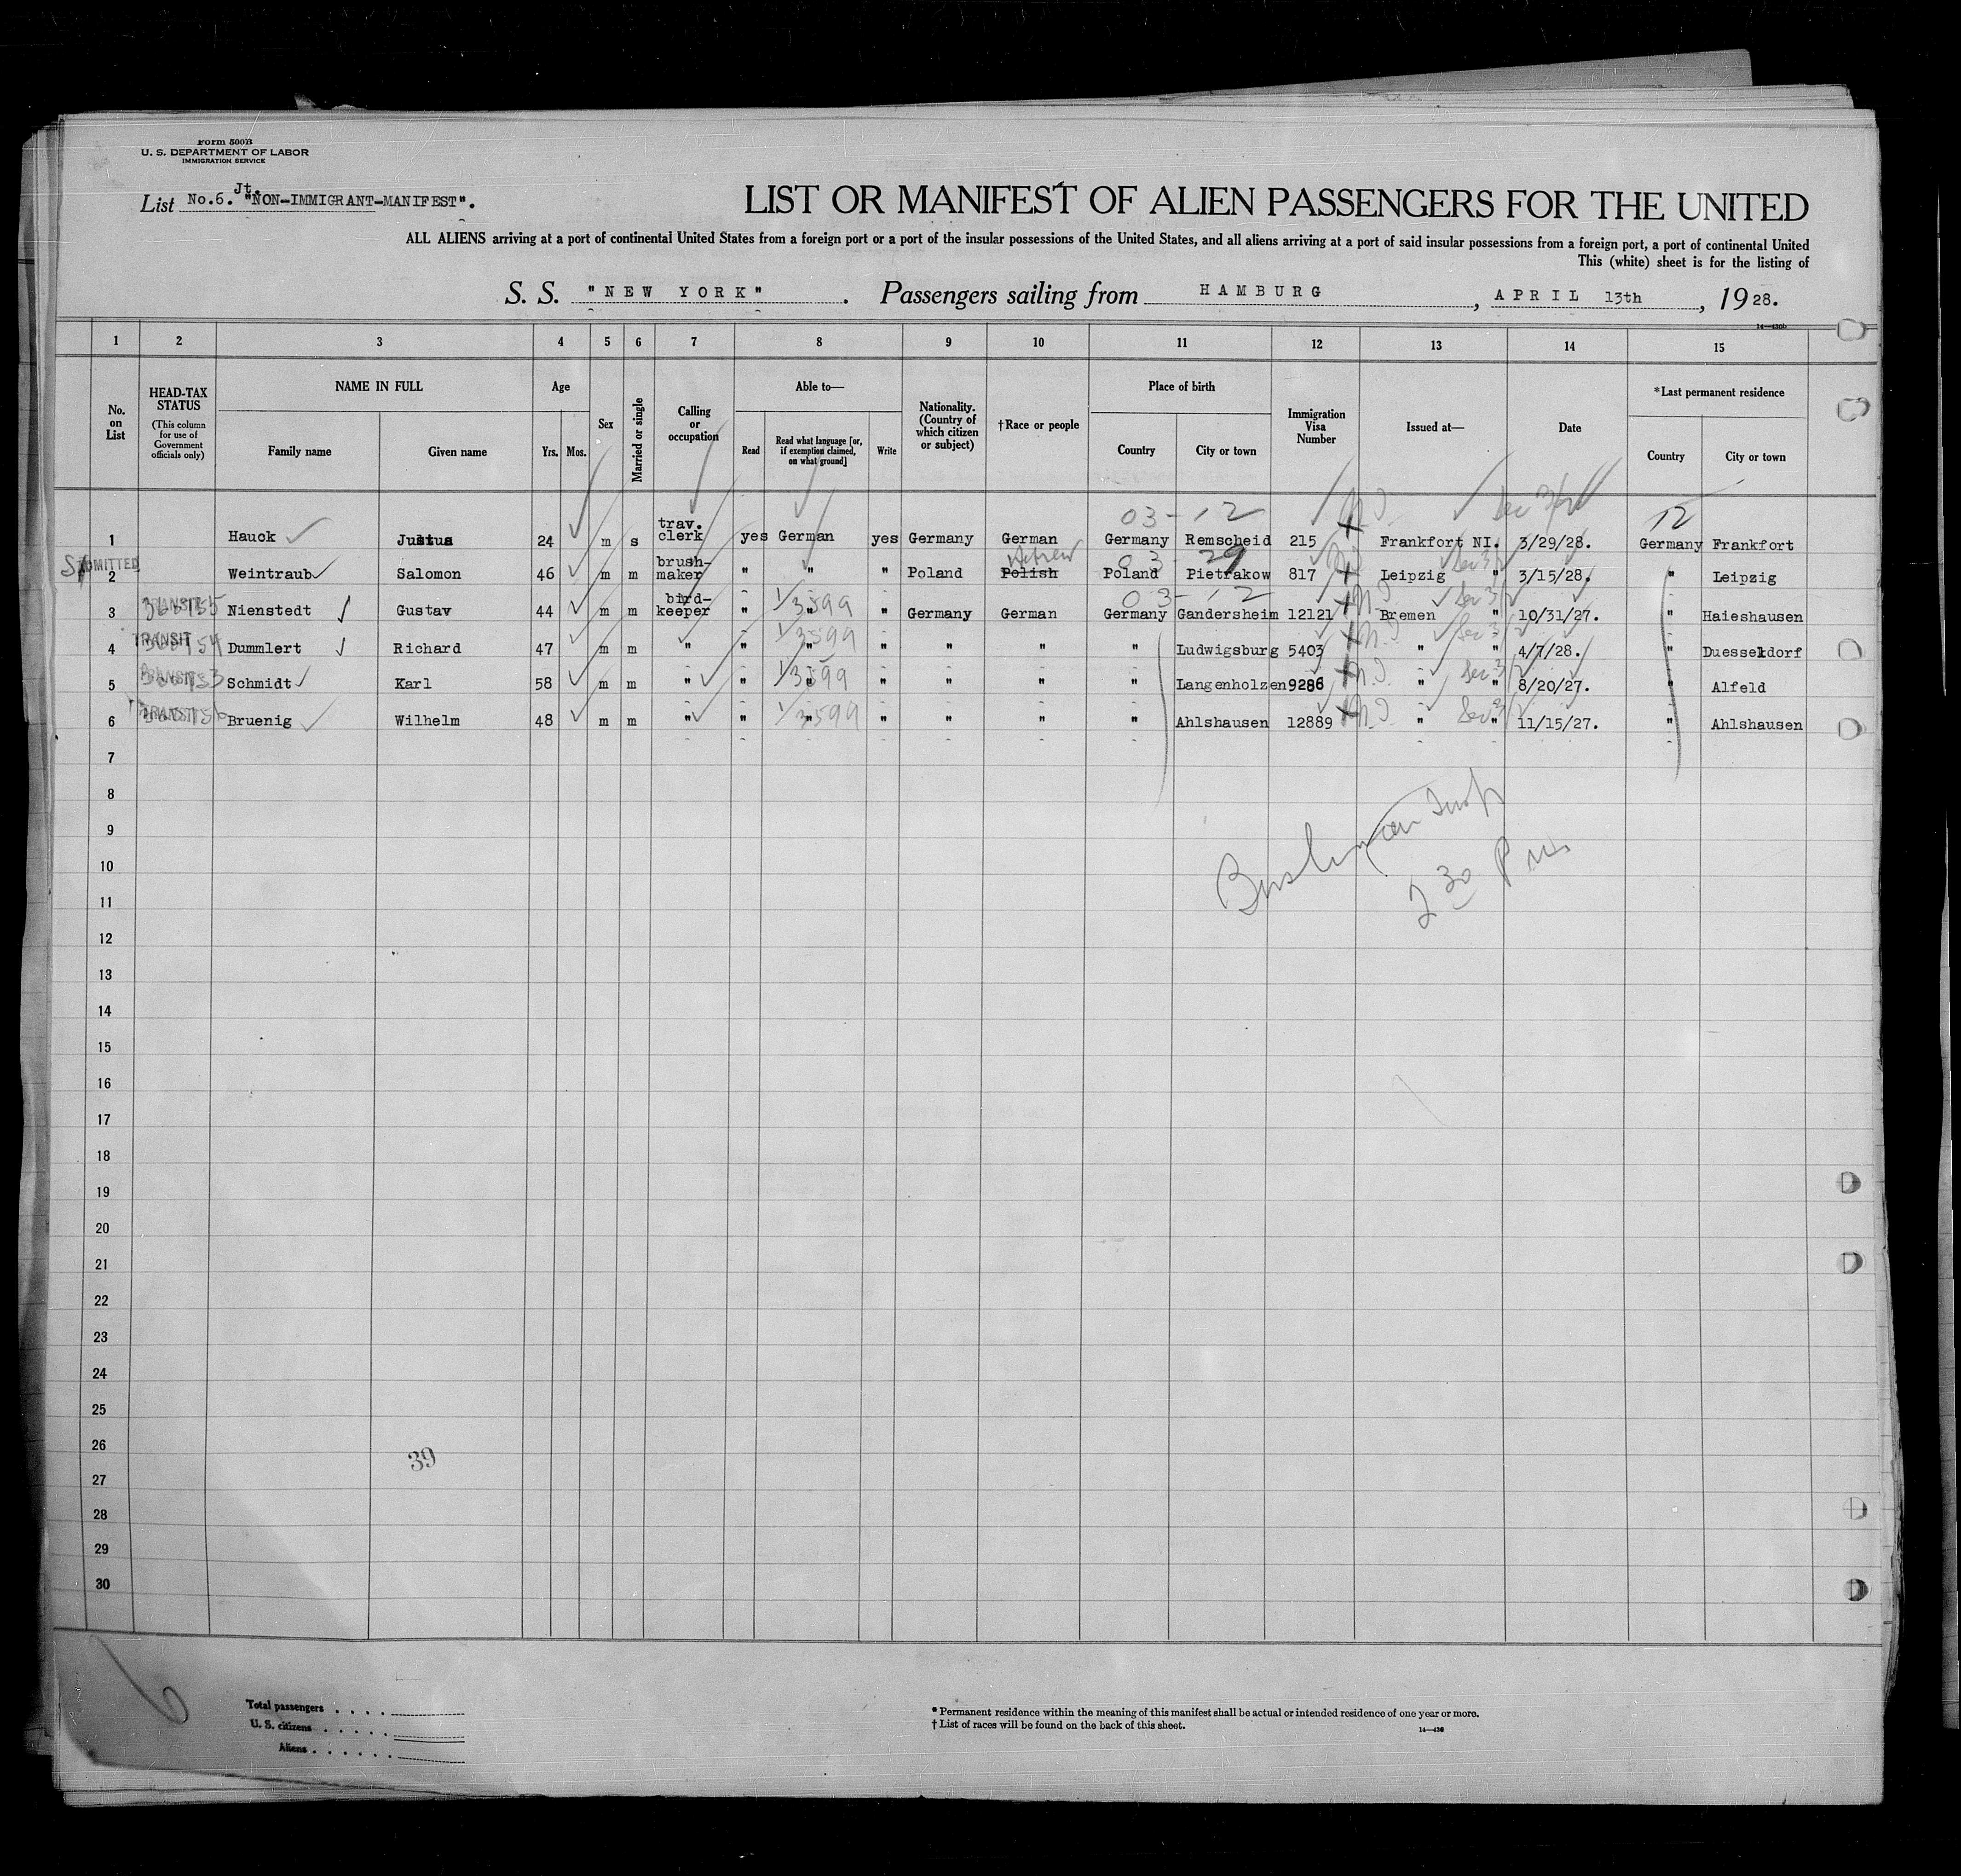 Form 500B
U. S. DEPARTMENT OF LABOR
IMMIGRATION SERVICE
Jt.
List No.6. "NON-IMMIGRANT-MANIFEST".
LIST OR MANIFEST OF ALIEN PASSENGERS FOR THE UNITED
ALL ALIENS arriving at a port of continental United States from a foreign port or a port of the insular possessions of the United States, and all aliens arriving at a port of said insular possessions from a foreign port, a port of continental United
This (white) sheet is for the listing of
S. S. "NEW YORK" . Passengers sailing from HAMBURG , APRIL 13th , 1928.
14—430b
1 2 3 4 5 6 7 8 9 10 11 12 13 14 15
No. on List
HEAD-TAX STATUS (This column for use of Government officials only)
NAME IN FULL Family name Given name
Age Yrs. Mos.
Sex
Married or single
Calling or occupation
Able to— Read Read what language [or, if exemption claimed, on what ground] Write
Nationality. (Country of which citizen or subject)
†Race or people
Place of birth Country City or town
Immigration Visa Number
Issued at—
Date
*Last permanent residence Country City or town
03-12 12
1 Hauck Justus 24 m s trav. clerk yes German yes Germany German Germany Remscheid 215 Frankfort NI. 3/29/28. Germany Frankfort
ADMITTED Hebrew 03 - 29
2 Weintraub Salomon 46 m m brush-maker " " " Poland Polish Poland Pietrakow 817 Leipzig " 3/15/28. " Leipzig
TRANSIT 1/3599 03-12
3 Nienstedt Gustav 44 m m bird-keeper " " " Germany German Germany Gandersheim 12121 Bremen " 10/31/27. " Haieshausen
TRANSIT 1/3599
4 Dummlert Richard 47 m m " " " " " " " Ludwigsburg 5403 " " 4/7/28. " Duesseldorf
TRANSIT 1/3599
5 Schmidt Karl 58 m m " " " " " " " Langenholzen 9286 " " 8/20/27. " Alfeld
TRANSIT 1/3599
6 Bruenig Wilhelm 48 m m " " " " " " " Ahlshausen 12889 " " 11/15/27. " Ahlshausen
7
8
9
10
11
2 30 P M
12
13
14
15
16
17
18
19
20
21
22
23
24
25
26
39
27
28
29
30
6
Total passengers . . . .
U. S. citizens . . . . . .
Aliens . . . . . .
* Permanent residence within the meaning of this manifest shall be actual or intended residence of one year or more.
† List of races will be found on the back of this sheet.
14—430